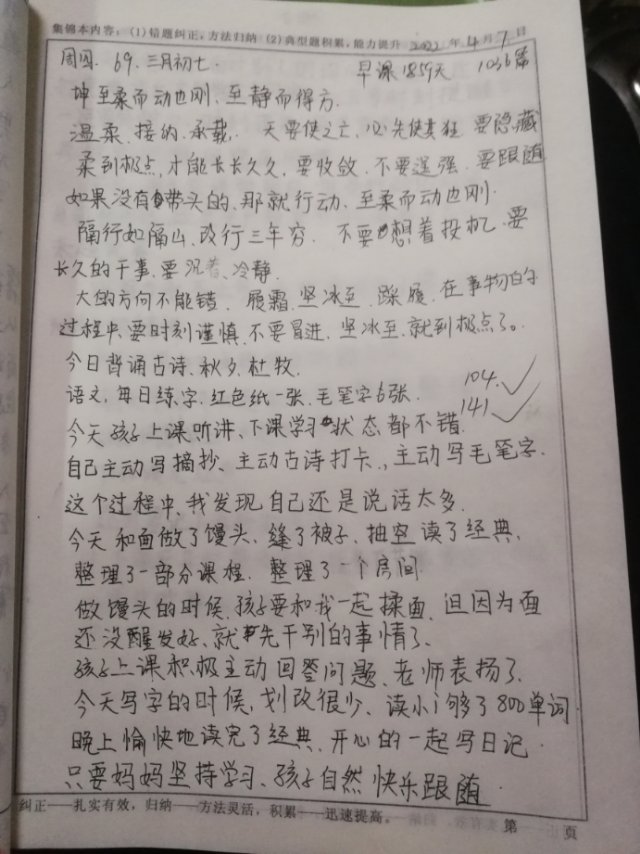 集锦本内容：(1)错题纠正，方法归纳 (2)典型题积累，能力提升 2022年4月7日
周四. 69. 三月初七. 早课1859天 1036篇
坤至柔而动也刚、至静而得方.
温柔、接纳、承载. 天要使之亡,必先使其狂. 要隐藏
柔到极点,才能长长久久,要收敛.不要逞强.要跟随
如果没有带头的、那就行动、至柔而动也刚.
隔行如隔山、改行三年穷. 不要想着投机、要
长久的干事、要沉着、冷静.
大的方向不能错. 履霜.坚冰至. 踩履.在事物的
过程中、要时刻谨慎、不要冒进. 坚冰至.就到极点了。
今日背诵古诗、秋夕、杜牧.
语文、每日练字.红色纸一张、毛笔字6张. 104.✓
今天孩子上课听讲、下课学习状态都不错. 141✓
自己主动写摘抄、主动古诗打卡、主动写毛笔字.
这个过程中、我发现自己还是说话太多.
今天和面做了馒头、缝了被子、抽空读了经典、
整理了一部分课程. 整理了一个房间.
做馒头的时候、孩子要和我一起揉面、但因为面
还没醒发好、就先干别的事情了、
孩子上课积极主动回答问题、老师表扬了.
今天写字的时候、划改很少、读小i够了800单词
晚上愉快地读完了经典、开心的一起写日记.
只要妈妈坚持学习、孩子自然快乐跟随
纠正——扎实有效，归纳——方法灵活，积累——迅速提高。 第 页